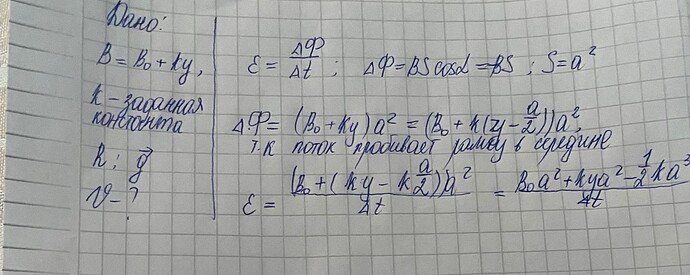 Дано:
B = B₀ + ky,
k - заданная
константа
R; g⃗
v - ?
ε = ΔФ/Δt ; ΔФ = BS cosα = BS ; S = a²
ΔФ = (B₀ + ky)a² = (B₀ + k(y - a/2))a²,
т.к поток пробивает рамку в середине
ε = (B₀ + (ky - k a/2))a² / Δt = B₀a² + kya² - 1/2 ka³ / Δt